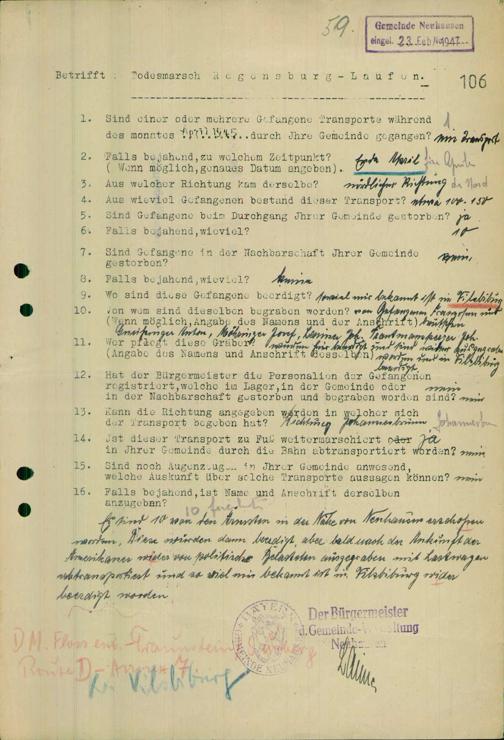 59.
Gemeinde Neuhausen
eingel. 23. Feb. 1947
Betrifft : Todesmarsch Regensburg - Laufen.
106
1. Sind einer oder mehrere Gefangene Transporte während
des monates April 1945 durch Jhre Gemeinde gegangen? ein Transport
1
2. Falls bejahend, zu welchem Zeitpunkt? Ende April
( Wenn möglich, genaues Datum angeben).
3. Aus welcher Richtung kam derselbe? nördlicher Richtung Nord
4. Aus wieviel Gefangenen bestand dieser Transport? etwa 100-150
5. Sind Gefangene beim Durchgang Jhrer Gemeinde gestorben? ja
6. Falls bejahend, wieviel? 10
7. Sind Gefangene in der Nachbarschaft Jhrer Gemeinde
gestorben? nein.
8. Falls bejahend, wieviel? keine
9. Wo sind diese Gefangene beerdigt? soviel mir bekannt ist in Vilsbiburg
10. Von wem sind dieselben begraben worden? von
(Wenn möglich, Angabe des Namens und der Anschrift).
Josef, Joh.
11. Wer pflegt diese Gräber? wurden
(Angabe des Namens und Anschrift desselben) worden und in Vilsbiburg
beerdigt
12. Hat der Bürgermeister die Personalien der Gefangenen
registriert, welche im Lager, in der Gemeinde oder nein
in der Nachbarschaft gestorben und begraben worden sind? nein
13. Kann die Richtung angegeben werden in welcher sich
der Transport begeben hat? Richtung Johannesbrunn, Johannesbrunn
14. Jst dieser Transport zu Fuß weitermarschiert oder ja
in Jhrer Gemeinde durch die Bahn abtransportiert worden? nein
15. Sind noch Augenzeugen in Jhrer Gemeinde anwesend,
welche Auskunft über solche Transporte aussagen können? nein
16. Falls bejahend, ist Name und Anschrift derselben
anzugeben?
10
Es sind 10 von den Ärmsten in der Nähe von Neuhausen erschossen
worden. Diese wurden dann beerdigt aber bald nach der Ankunft der
Amerikaner wieder von politisch Belasteten ausgegraben mit Lastwagen
abtransportiert und so viel mir bekannt ist in Vilsbiburg wieder
beerdigt worden.
Der Bürgermeister
d. Gemeinde-Verwaltung
Neuhausen
D.M. Flossenb.-Traunstein
Route D-
Vilsbiburg